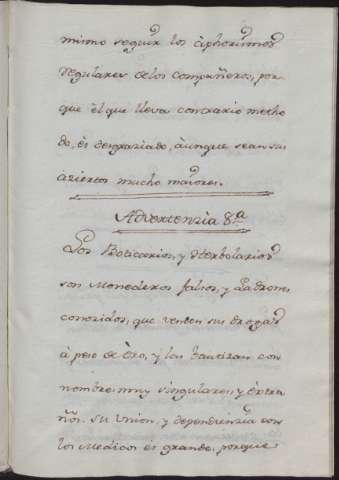 mismo seguir los àphorismos
regulares de los compañeros, por-
que èl que lleva contrario metho
do, ès desgraziado, àunque sean sus
aziertos mucho maiores.
Advertenzia 8ª
Los Boticarios, y Herbolarios
son Monederos falsos, y Ladrones
conozidos, que venden sus drogas
à peso de òro, y las bautizan con
nombres muy singulares, y èxtra
ños. su union, y dependenzia con
los Medicos es grande, porque